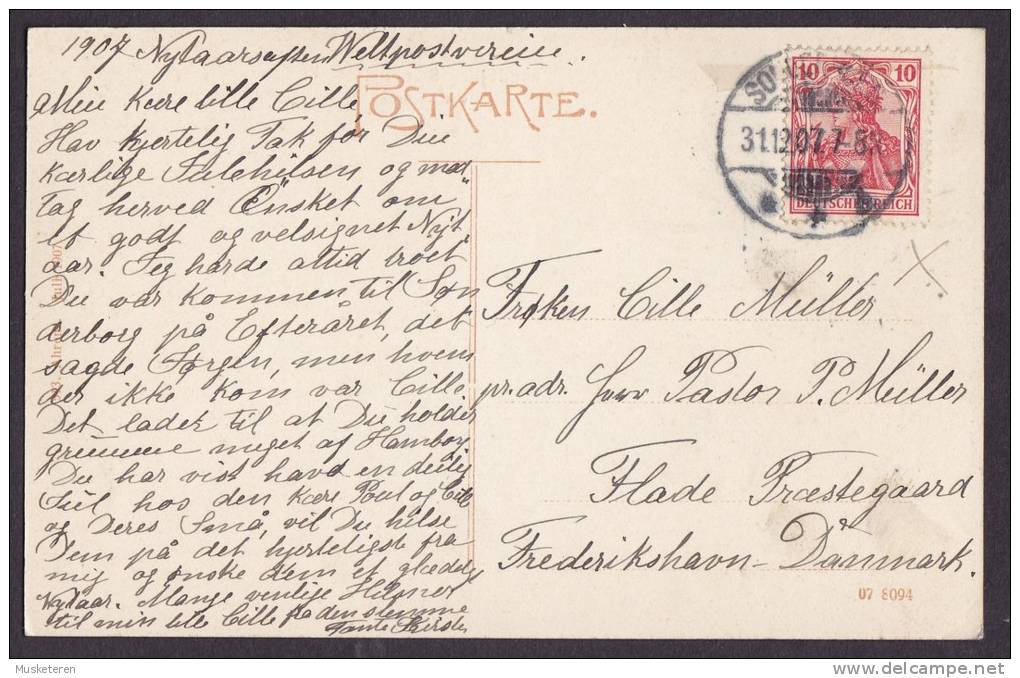 1907 Nytaarsaften Weltpostverein.
POSTKARTE.
Min kære lille Cille
Hav hjertelig Tak for Din
kærlige Julehilsen og mod
tag herved Ønsket om
et godt og velsignet Nyt
aar. Jeg havde altid troet
Du var kommen til Søn
derborg på Efteraaret, det
sagde Jørgen, men hvem
der ikke kom var Cille.
Det lader til at Du holder
grumme meget af Hamborg
Du har vist havd en deilig
Jul hos den kære Poul og Cille
og Deres Små, vil Du hilse
Dem på det hjerteligste fra
mig og ønske dem et glædeligt
Nytaar. Mange venlige Hilsner
til min lille Cille fra den
Tante
10 10
DEUTSCHES REICH
31.12.07. 7-8
Frøken Cille Müller
pr. adr. Herr Pastor P. Müller
Flade Præstegaard
Frederikshavn - Danmark.
07 8094
Musketeren
delcampe.net